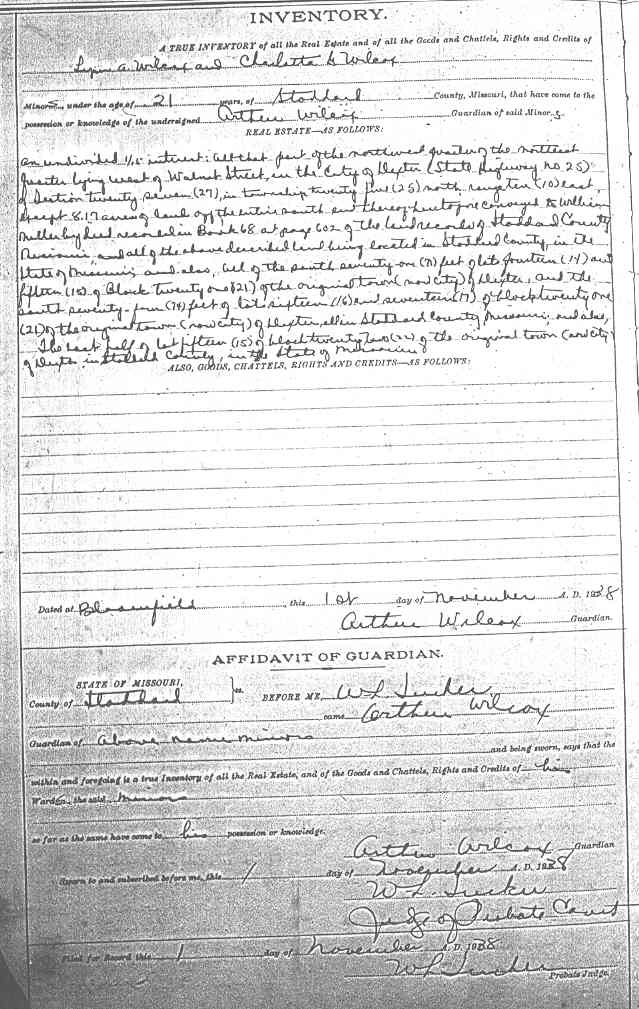 INVENTORY.
A TRUE INVENTORY of all the Real Estate and of all the Goods and Chattels, Rights and Credits of
A. Wilcox and Charlotte Wilcox
Minors, under the age of 21 years, of Stoddard County, Missouri, that have come to the
possession or knowledge of the undersigned Arthur Wilcox Guardian of said Minors
REAL ESTATE—AS FOLLOWS:
an undivided 1/5 interest: all that part of the northwest quarter of the northeast
quarter lying west of Walnut Street, in the City of Dexter (State Highway no. 25)
of Section twenty seven (27), in township twenty five (25) north, range ten (10) east,
except 8.17 acres of land off the entire south end thereof heretofore conveyed to William
Miller by deed recorded in Book 68 at page 602 of the land records of Stoddard County
Missouri, and all of the above described land being located in Stoddard County, in the
State of Missouri, and also, all of the south seventy-one (71) feet of lots fourteen (14) and
fifteen (15) of Block twenty one (21) of the original town (now city) of Dexter, and the
south seventy-four (74) feet of lot sixteen (16) and seventeen (17) of block twenty one
(21) of the original town (now city) of Dexter, all in Stoddard County Missouri, and also,
The East half of lot fifteen (15) of block twenty two (22) of the original town (now city)
of Dexter in Stoddard County, in the State of Missouri
ALSO, GOODS, CHATTELS, RIGHTS AND CREDITS—AS FOLLOWS:
Dated at Bloomfield, this 1st day of November A. D. 1938
Arthur Wilcox Guardian.
AFFIDAVIT OF GUARDIAN.
STATE OF MISSOURI, } ss.
County of Stoddard BEFORE ME, W L Tucker
came Arthur Wilcox
Guardian of above name minors
and being sworn, says that the
within and foregoing is a true Inventory of all the Real Estate, and of the Goods and Chattels, Rights and Credits of his
Wards, the said minors
so far as the same have come to his possession or knowledge.
Arthur Wilcox Guardian
Sworn to and subscribed before me, this 1 day of November A. D. 1938
W. L. Tucker
Judge of Probate Court
Filed for Record this 1 day of November A. D. 1938
W L Tucker Probate Judge.